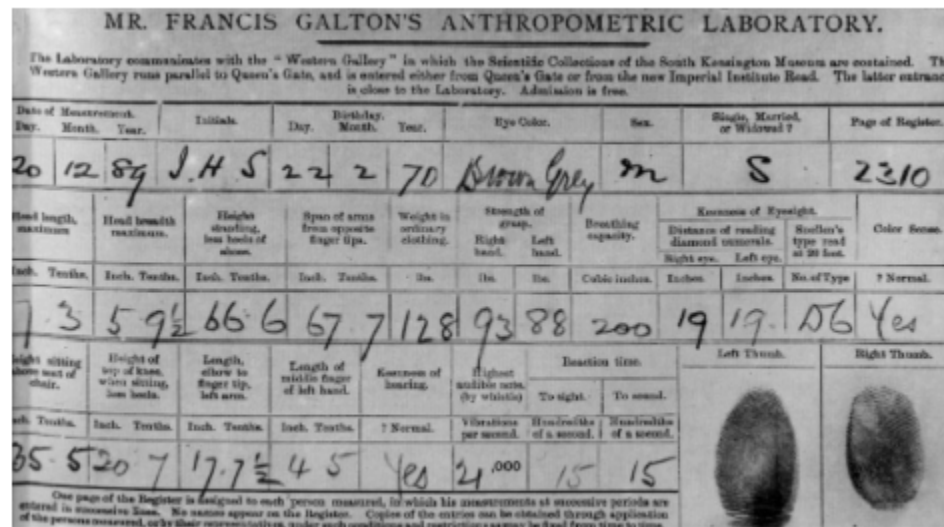 MR. FRANCIS GALTON'S ANTHROPOMETRIC LABORATORY.
The Laboratory communicates with the "Western Gallery" in which the Scientific Collections of the South Kensington Museum are contained. Th
Western Gallery runs parallel to Queen's Gate, and is entered either from Queen's Gate or from the new Imperial Institute Road. The latter entranc
is close to the Laboratory. Admission is free.
Date of Measurement. Initials. Birthday. Eye Color. Sex. Single, Married, or Widowed? Page of Register.
Day. Month. Year. Day. Month. Year.
20 12 89 J. H S 22 2 70 Brown Grey m S 2310
Head length, maximum Head breadth maximum. Height standing, less heels of shoes. Span of arms from opposite finger tips. Weight in ordinary clothing. Strength of grasp. Breathing capacity. Keenness of Eyesight. Color Sense.
Right hand. Left hand. Distance of reading diamond numerals. Snellen's type read at 20 feet.
Right eye. Left eye.
Inch. Tenths. Inch. Tenths. Inch. Tenths. Inch. Tenths. lbs. lbs. lbs. Cubic inches. Inches. Inches. No. of Type ? Normal.
7 3 5 9½ 66 6 67 7 128 93 88 200 19 19. D6 Yes
Height sitting above seat of chair. Height of top of knee, when sitting, less heels. Length, elbow to finger tip, left arm. Length of middle finger of left hand. Keenness of hearing. Highest audible note. (by whistle) Reaction time. Left Thumb. Right Thumb.
To sight. To sound.
Inch. Tenths. Inch. Tenths. Inch. Tenths. Inch. Tenths. ? Normal. Vibrations per second. Hundredths of a second. Hundredths of a second.
35 5 20 7 17. 7½ 4 5 Yes 21 ,000 15 15
One page of the Register is assigned to each person measured, in which his measurements at successive periods are
entered in successive lines. No names appear on the Register. Copies of the entries can be obtained through application
of the persons measured, or by their representatives, under such conditions and restrictions as may be fixed from time to time.